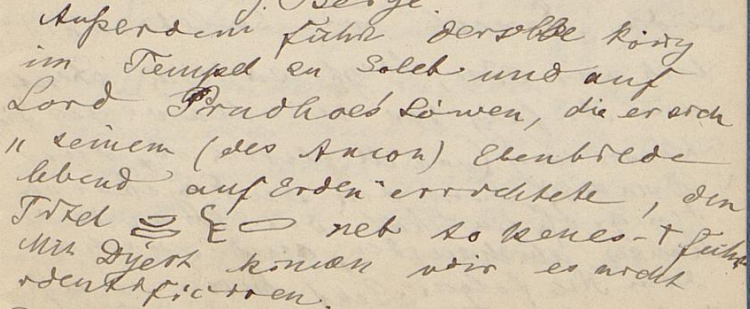 J. Berge.
Außerdem führt derselbe König
im Tempel zu Soleb und auf
Lord Prudhoes Löwen, die er sich
„ seinem (des Amon) Ebenbilde
lebend auf Erden" errichtete, den
Titel neb to penes-t führt
Mit Djert können wir es nicht
identificiren.